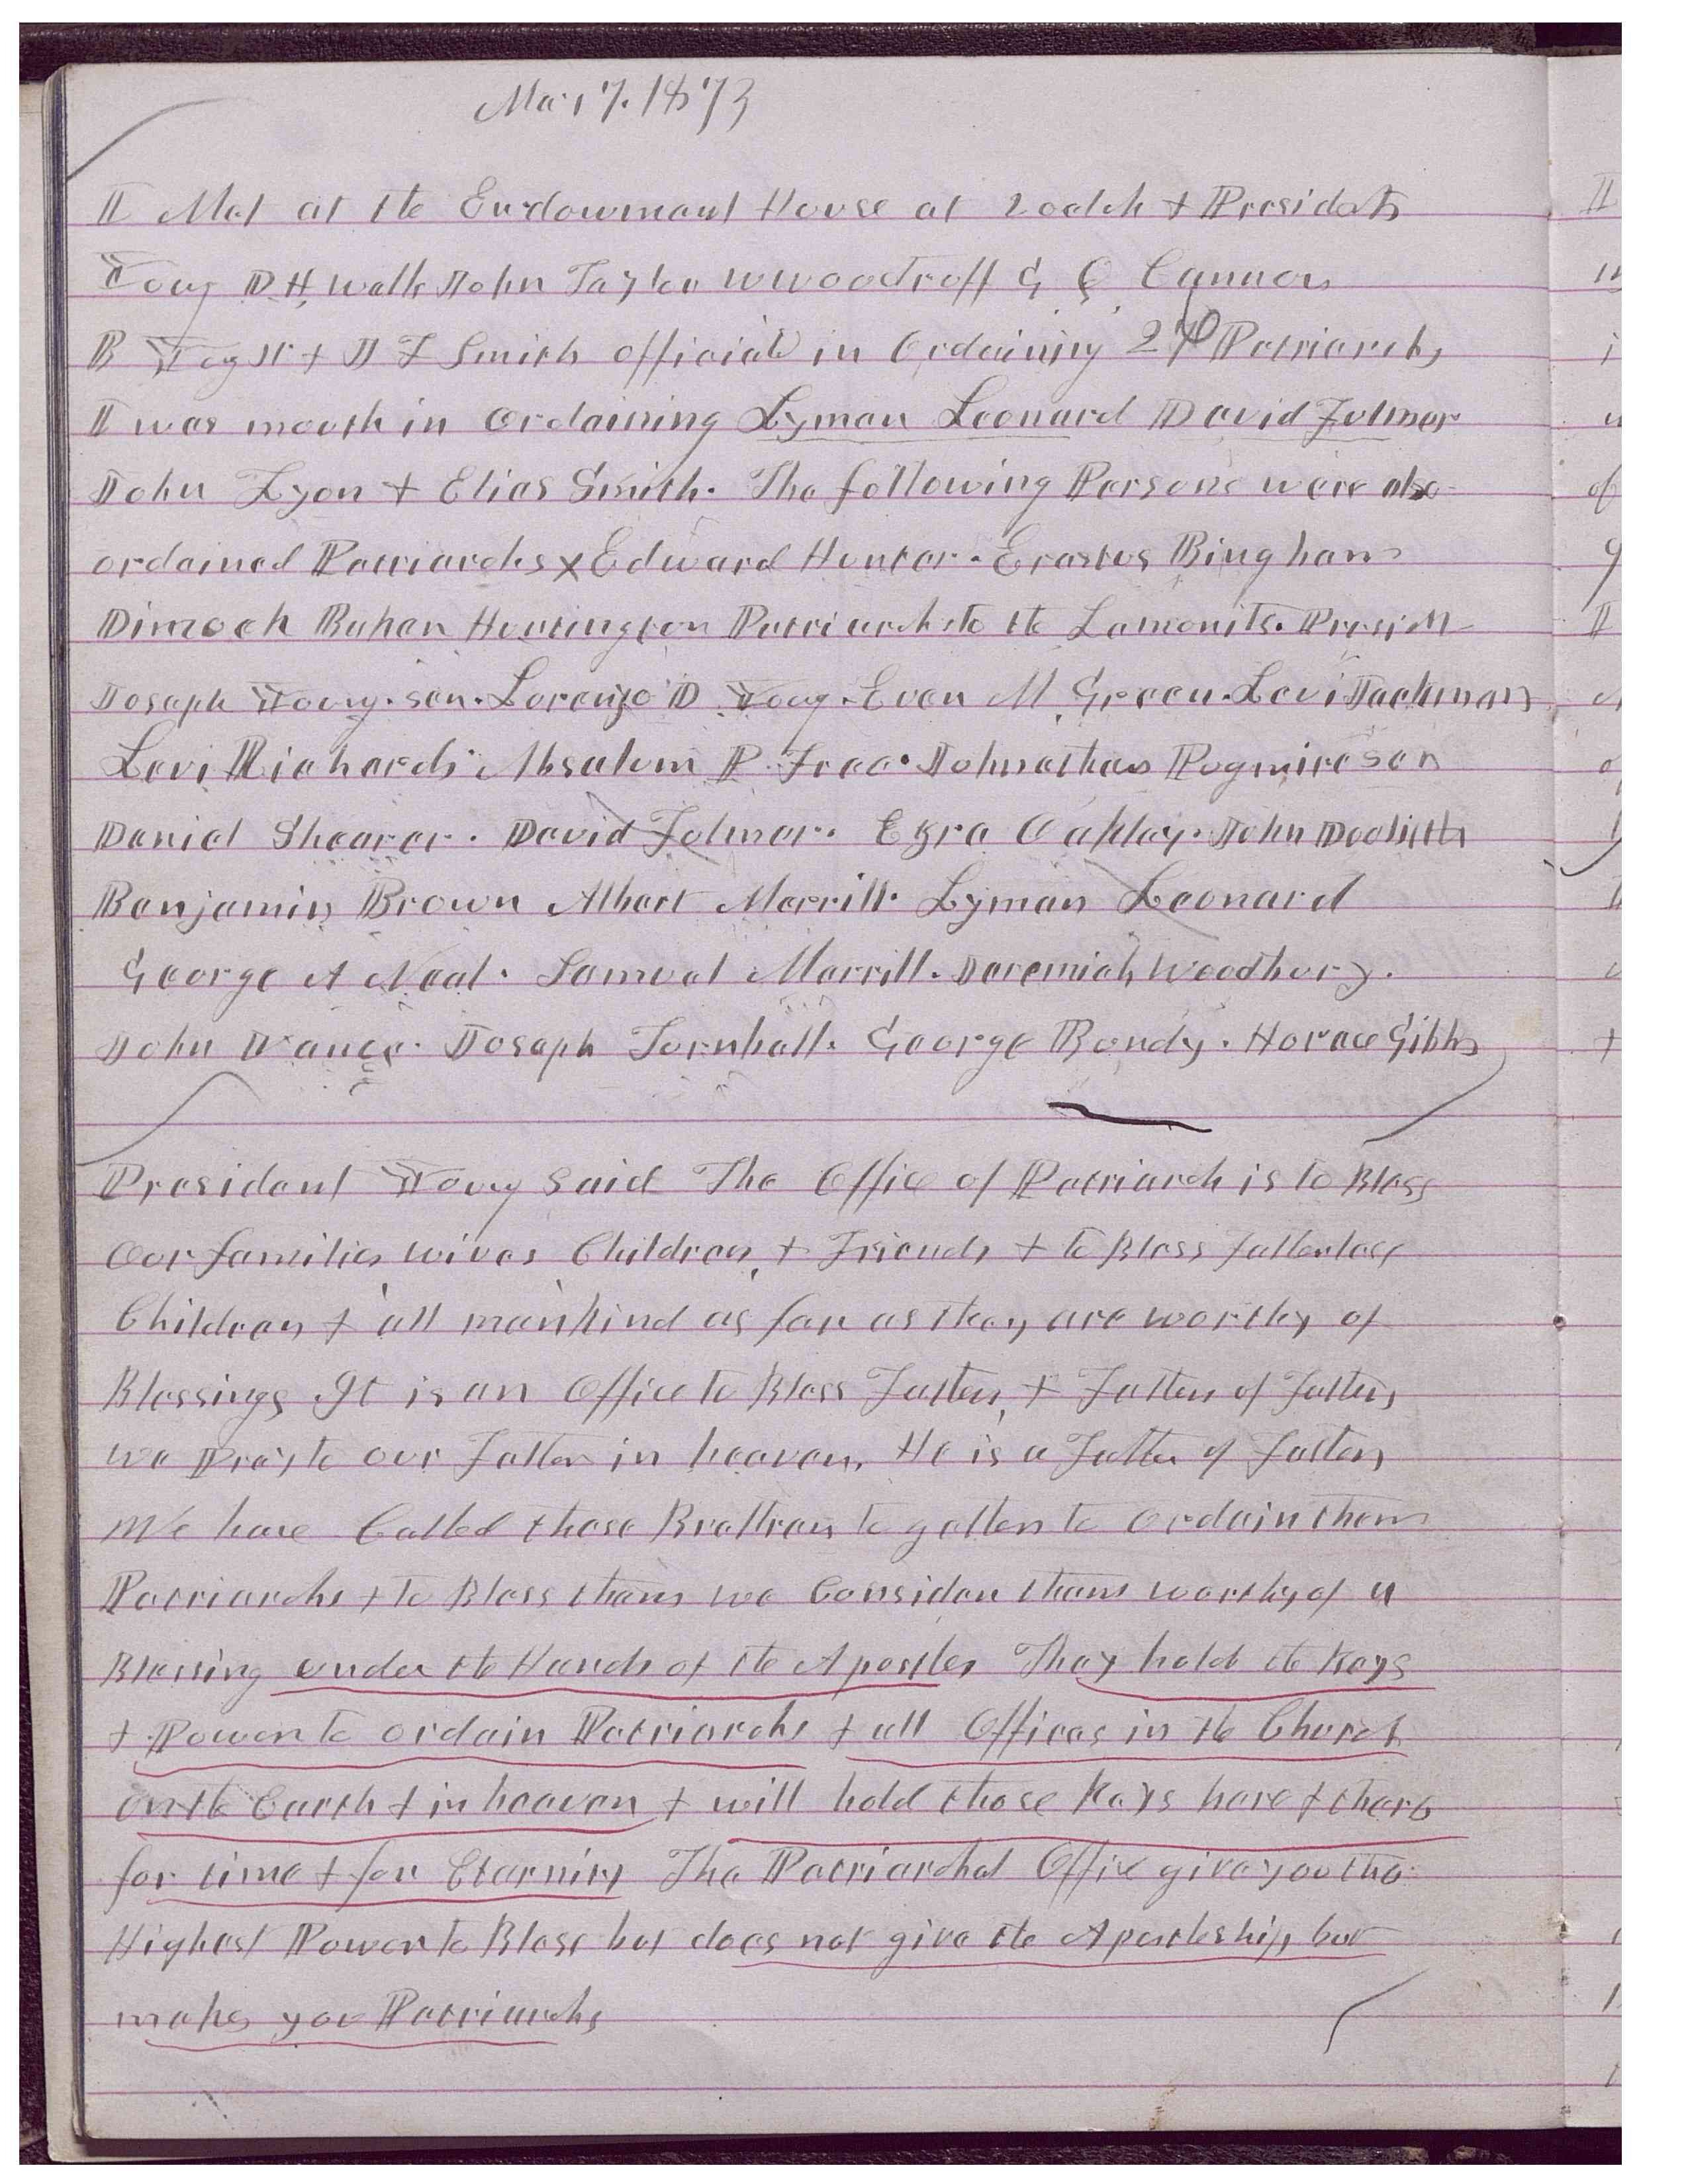 Mar 7. 1873
I Met at the Endowmant House at 2 oclok + Presidets
Young D. H. Wells John Taylor W Woodruff G Q Cannon
B Yog Jr + J F Smith officiatd in Ordaining 20 Patriarchs
I was mouth in ordaining Lyman Leonard David Fulmer
John Lyon + Elias Smith. The following Persons were also
ordained Patriarchs x Edward Hunter. Erastus Bingham
Dimock Baker Huntington Patriarch to the Lamanits. Presidt
Joseph Young. sen. Lorenzo D Young. Evan M Green. Levi Jackman
Levi Richards. Absalum P Free. Johnathan Pugmire sen
Daniel Shearer. David Folmer. Ezra Oakley. John Doolittle
Benjamin Brown Albert Merrill. Lyman Leonard
George A Neal. Samuel Merrill. Jeremiah Woodbury.
John Vance. Joseph Turnball. George Bondy. Horace Gibbs
President Young Said The Office of Patriarch is to Bless
Our families wives Children, + Friends + to Bless fatherless
Children + all mankind as far as they are worthy of
Blessings. It is an Office to Bless Fathers, + Fathers of Fathers
we Pray to our Father in heaven, He is a Father of Fathers
We have Called those Brethren to gether to ordain them
Patriarchs + to Bless them we Consider them worthy of a
Blessing under the Hands of the Apostles They hold the Keys
+ Power to ordain Patriarchs + all Offices in the Church
on the Earth + in heaven + will hold those Keys here + there
for time + for Eternity The Patriarchal Office give you the
Highest Power to Bless but does not give the Apostleship but
makes you Patriarchs